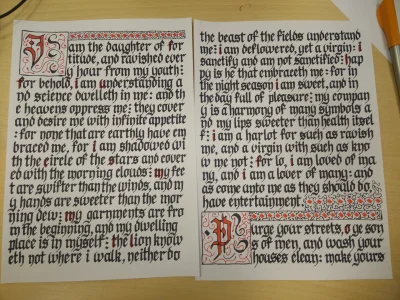 I am the daughter of for
titude, and ravished ever
y hour from my youth:
for behold, i am understanding a
nd science dwelleth in me: and th
e heavens oppress me: they cover
and desire me with infinite appetite
: for none that are earthly have em
braced me, for i am shadowed wi
th the circle of the stars and cover
ed with the morning clouds: my fee
t are swifter than the winds, and m
y hands are sweeter than the mor
ning dew: my garments are fro
m the beginning, and my dwelling
place is in myself: the lion know
eth not where i walk, neither do
the beast of the fields understand
me: i am deflowered, yet a virgin: i
sanctify and am not sanctified: hap
py is he that embraceth me: for in
the night season i am sweet, and in
the day full of pleasure: my compan
y is a harmony of many symbols a
nd my lips sweeter than health itsel
f: i am a harlot for such as ravish
me, and a virgin with such as kno
w me not: for lo, i am loved of ma
ny, and i am a lover of many: and
as come unto me as they should do
have entertainment.
Purge your streets, o ye son
s of men, and wash your
houses clean: make yours